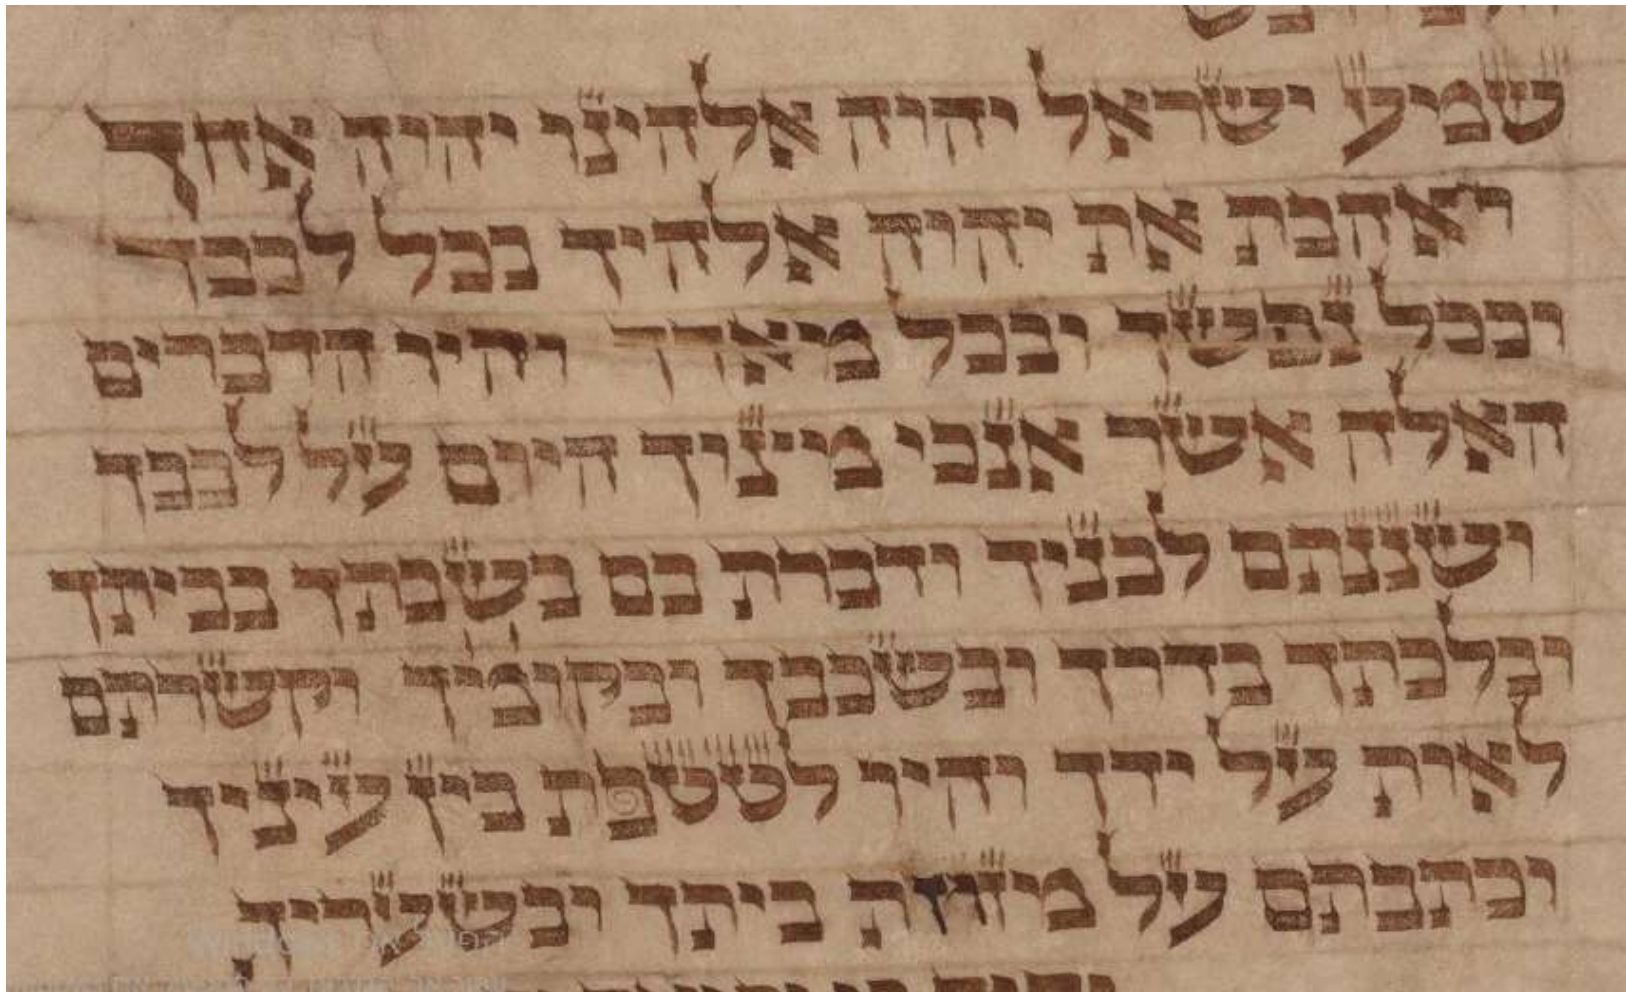 שמע ישראל יהוה אלהינו יהוה אחד
ואהבת את יהוה אלהיך בכל לבבך
ובכל נפשך ובכל מאדך והיו הדברים
האלה אשר אנכי מצוך היום על לבבך
ושננתם לבניך ודברת בם בשבתך בביתך
ובלכתך בדרך ובשכבך ובקומך וקשרתם
לאות על ידך והיו לטטפת בין עיניך
וכתבתם על מזוזת ביתך ובשעריך